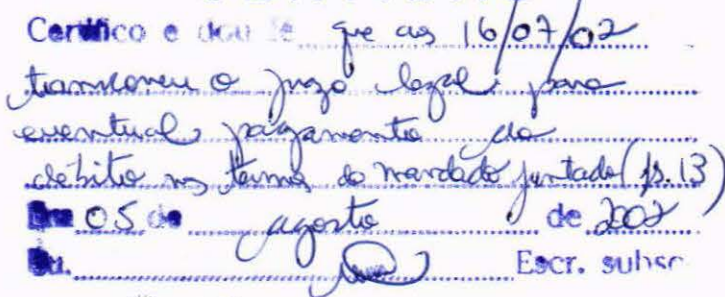 Certifico e dou fé que aos 16/07/02
transcorreu o prazo legal para
eventual pagamento do
débito nos termos do mandado juntado (fs. 13)
Em 05 de agosto de 2002
Eu. Escr. subsc